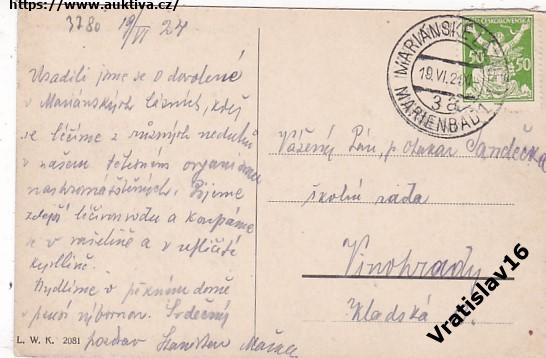 https://www.auktiva.cz/
3780
19/VI 24
Usadili jsme se o dovolené
v Mariánských Lázních, kdež
se léčíme z různých neduhů
v našem tělesném organismu
nashromážděných. Pijeme
zdejší léčivou vodu a koupáme
se v rašelině a v uhličité
kyselině.
Bydlíme v pěkném domě
výborném. Srdečný
pozdrav Stanislav
L. W. K. 2081
MARIÁNSKÉ
19.VI.24
3a
MARIENBAD 1
ČESKOSLOVENSKÁ
50 50
Vážený Pán, p. Otakar
školní rada
Vinohrady
Kladská
Vratislav16